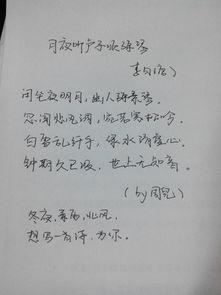 月夜听卢子顺弹琴
李白（唐）
闲坐夜明月，幽人弹素琴。
忽闻悲风调，宛若寒松吟。
白雪乱纤手，绿水清虚心。
钟期久已没，世上无知音。
(by 周
冬夜，暮雨，北风，
想写一首诗，为你。